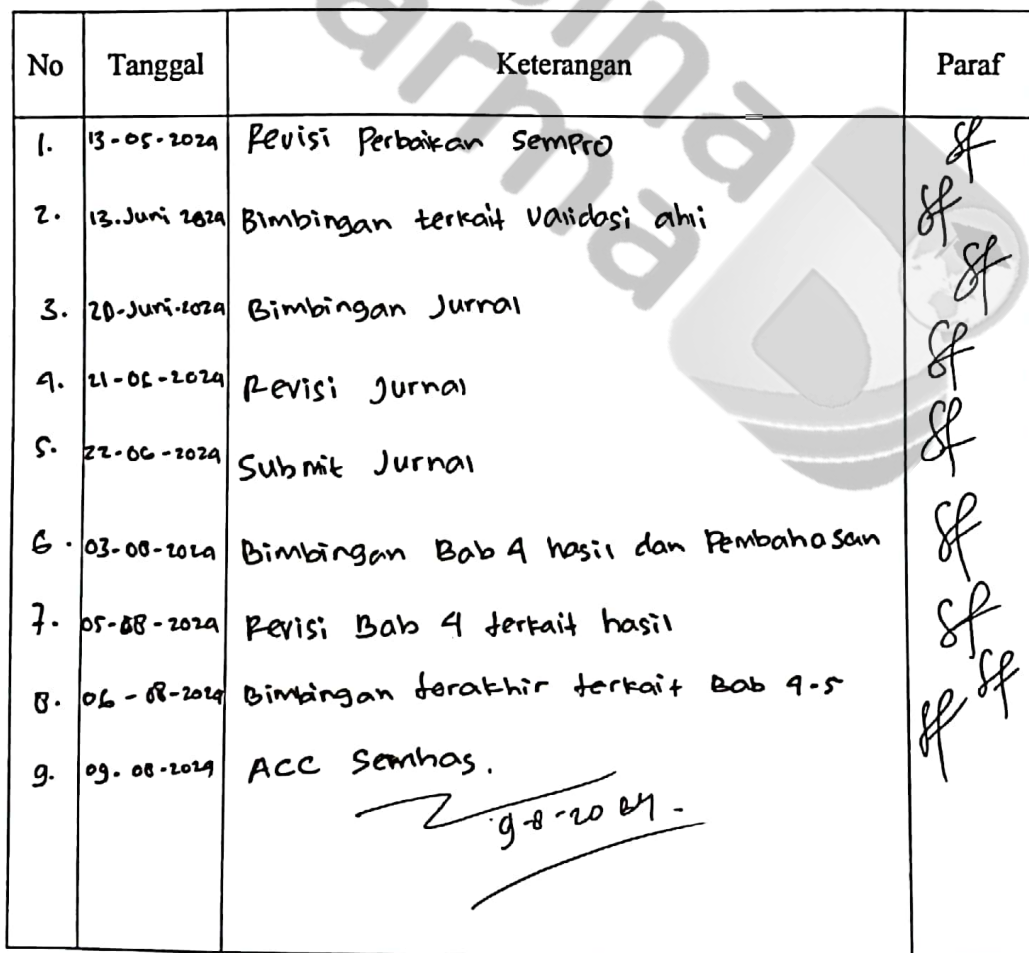 No Tanggal Keterangan Paraf
1. 13-05-2024 Revisi Perbaikan Sempro
2. 13.Juni 2024 Bimbingan terkait validasi ahli
3. 20-Juni-2024 Bimbingan Jurnal
4. 21-06-2024 Revisi Jurnal
5. 22-06-2024 Submit Jurnal
6. 03-08-2024 Bimbingan Bab 4 hasil dan Pembahasan
7. 05-08-2024 Revisi Bab 4 terkait hasil
8. 06-08-2024 Bimbingan terakhir terkait Bab 4-5
9. 09-08-2024 ACC Semhas.
9-8-2024.